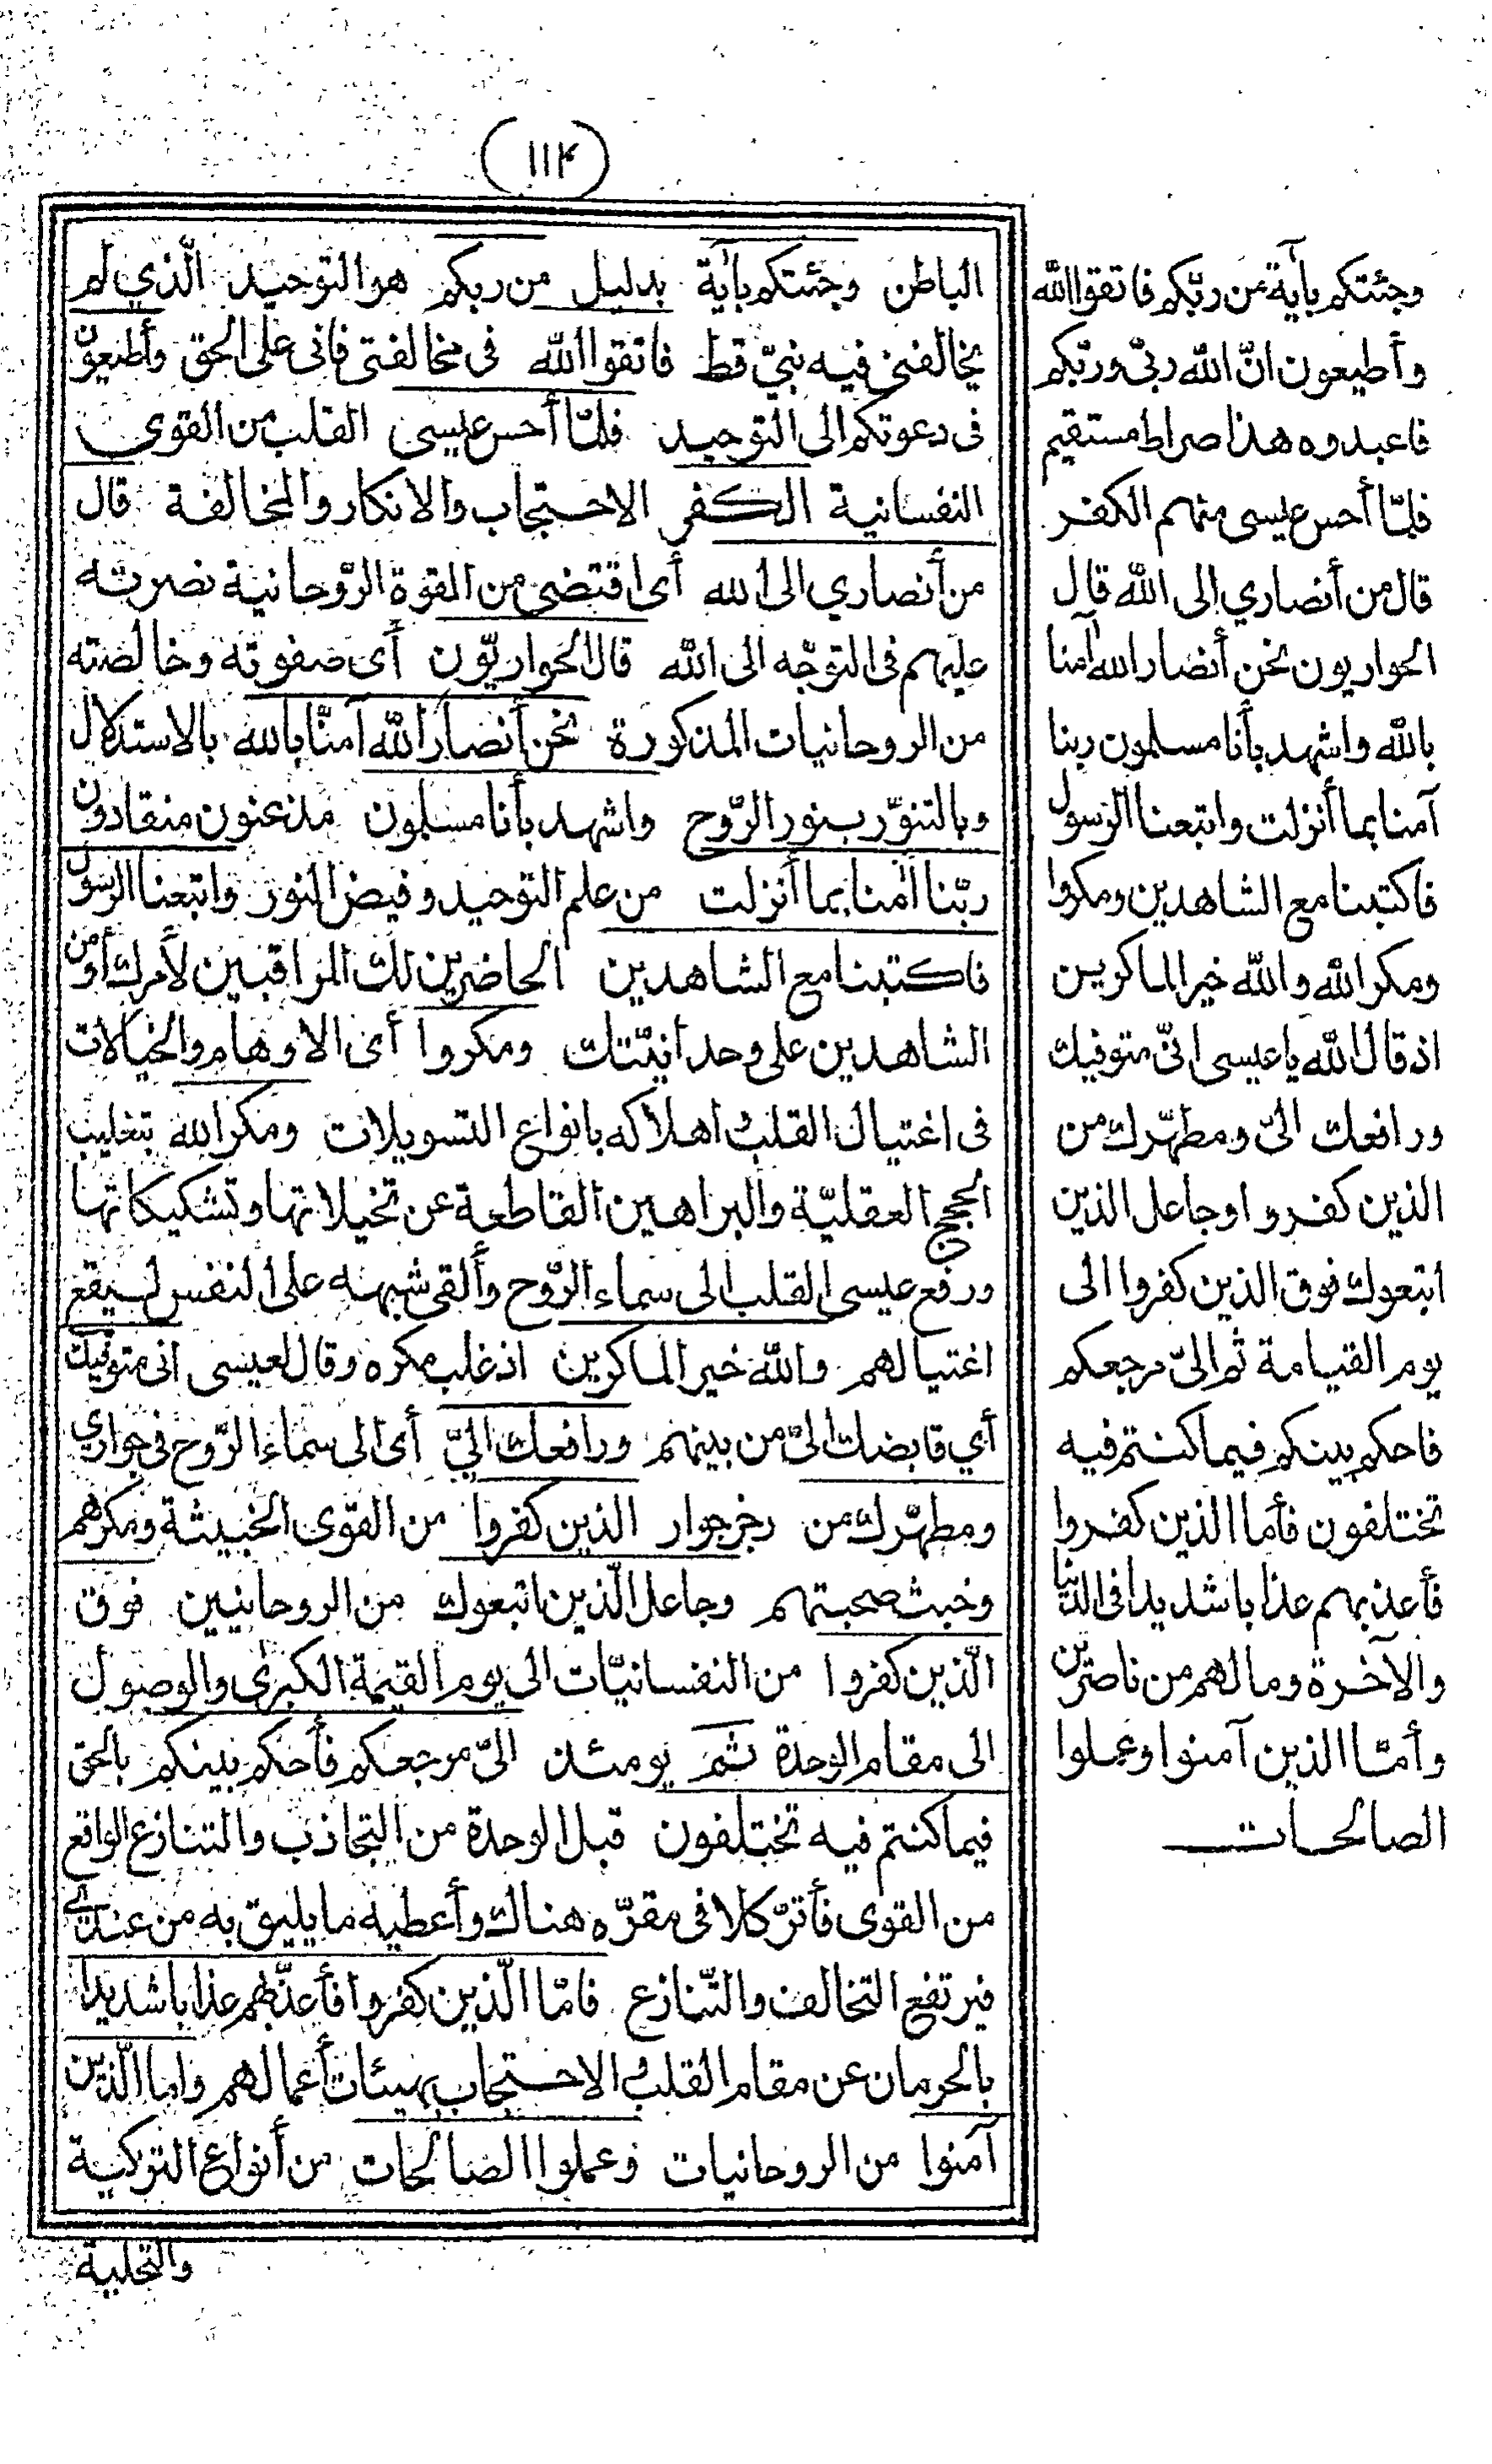 (۱۱۴)
وجئتكم بآية من ربّكم فاتقوا الله
وأطيعون انّ الله ربيّ وربّكم
فاعبدوه هذا صراط مستقيم
فلمّا أحس عيسى منهم الكفر
قال من أنصاري إلى الله قال
الحواريون نحن أنصار الله آمنا
بالله واشهد بأنا مسلمون ربنا
آمنا بما أنزلت واتبعنا الرسول
فاكتبنا مع الشاهدين ومكروا
ومكر الله والله خير الماكرين
اذ قال الله يا عيسى انيّ متوفيك
ورافعك اليّ ومطهّرك من
الذين كفروا وجاعل الذين
اتبعوك فوق الذين كفروا الى
يوم القيامة ثم اليّ مرجعكم
فاحكم بينكم فيما كنتم فيه
تختلفون فأما الذين كفروا
فأعذبهم عذابا شديدا في الدنيا
والآخرة وما لهم من ناصرين
وأمّا الذين آمنوا وعملوا
الصالحات
الباطن وجئتكم بآية بدليل من ربكم هو التوحيد الّذي لم
يخالفني فيه نبيّ قط فاتقوا الله في مخالفتي فاني على الحق وأطيعون
في دعوتكم الى التوحيد فلمّا أحس عيسى القلب من القوى
النفسانية الكفر الاحتجاب والانكار والمخالفة قال
من أنصاري الى الله أى اقتضى من القوة الرّوحانية نصرته
عليهم في التوجّه الى الله قال الحواريّون أى صفوته وخالصته
من الروحانيات المذكورة نحن أنصار الله آمنّا بالله بالاستدلال
وبالتنوّر بنور الرّوح واشهد بأنا مسلمون مذعنون منقادون
ربّنا آمنا بما أنزلت من علم التوحيد وفيض النور واتبعنا الرسول
فاكتبنا مع الشاهدين الحاضرين لك المراقبين لأمرك أو من
الشاهدين على وحدانيّتك ومكروا أى الاوهام والخيالات
فى اغتيال القلب اهلاكه بانواع التسويلات ومكر الله بتغليب
الحجج العقليّة والبراهين القاطعة عن تخيلاتها وتشكيكاتها
ورفع عيسى القلب الى سماء الرّوح وألقى شبهه على النفس ليقع
اغتيالهم والله خير الماكرين اذ غلب مكره وقال لعيسى انى متوفيك
أي قابضك اليّ من بينهم ورافعك اليّ أى الى سماء الرّوح في جواري
ومطهّرك من رجز جوار الذين كفروا من القوّى الخبيثة ومكرهم
وخبث صحبتهم وجاعل الّذين اتبعوك من الروحانيين فوق
الّذين كفروا من النفسانيّات الى يوم القيمة الكبرى والوصول
الى مقام الوحدة ثم يومئذ اليّ مرجعكم فأحكم بينكم بالحق
فيما كنتم فيه تختلفون قبل الوحدة من التجاذب والتنازع الواقع
من القوى فأترّ كلا في مقرّه هناك وأعطيه ما يليق به من عندي
فيرتفع التخالف والتّنازع فامّا الّذين كفروا فأعذّبهم عذابا شديدا
بالحرمان عن مقام القلب والاحتجاب بهيئات أعمالهم واما الّذين
آمنوا من الروحانيات وعملوا الصالحات من أنواع التزكية
والتحلية